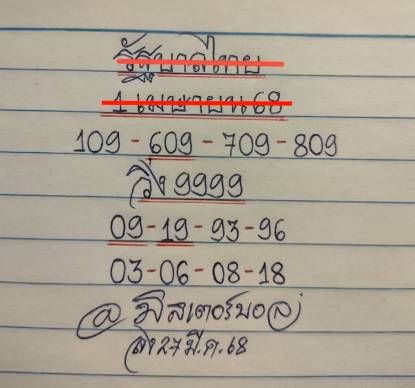 รัฐบาลไทย
1 เมษายน 68
109 - 609 - 709 - 809
วิ่ง 9999
09-19-93-96
03-06-08-18
@ มิสเตอร์บอล
ส่ง 27 มี.ค. 68